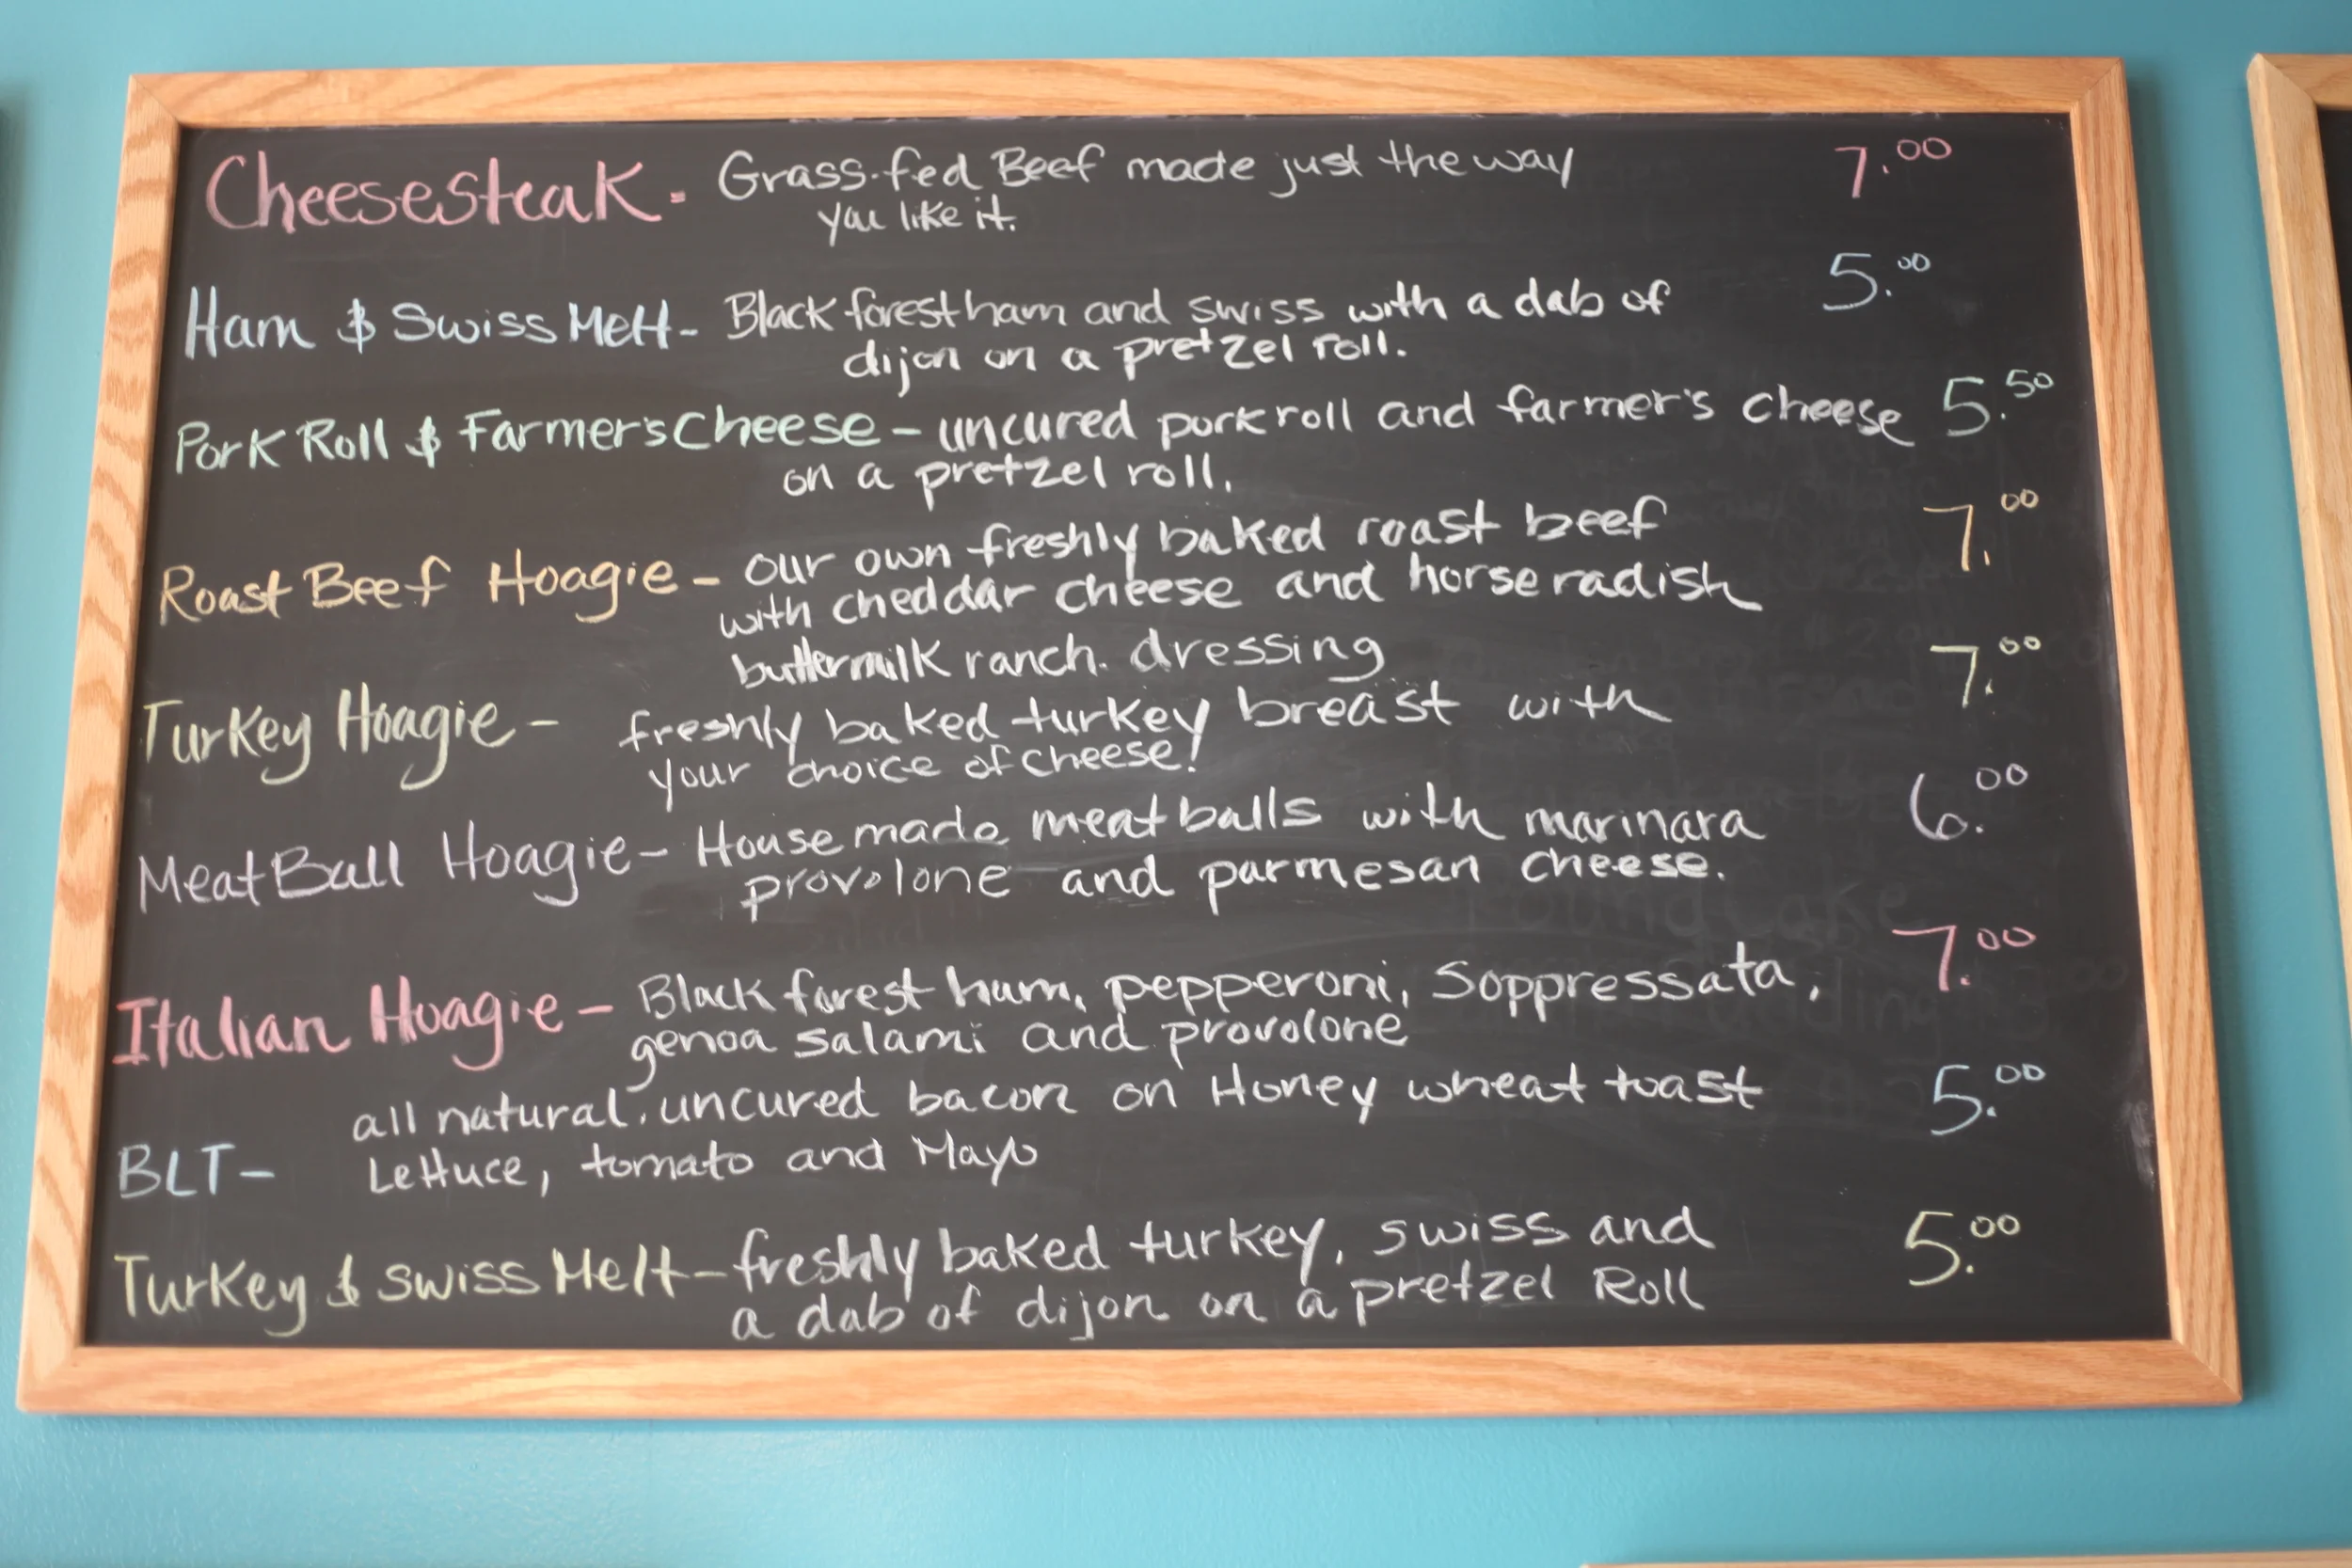 Cheesesteak - Grass-fed Beef made just the way 7.00
you like it.
Ham & Swiss Melt - Black forest ham and swiss with a dab of 5.00
dijon on a pretzel roll.
Pork Roll & Farmer's Cheese - uncured pork roll and farmer's cheese 5.50
on a pretzel roll.
Roast Beef Hoagie - our own freshly baked roast beef 7.00
with cheddar cheese and horseradish
buttermilk ranch. dressing
Turkey Hoagie - freshly baked turkey breast with 7.00
your choice of cheese!
MeatBall Hoagie - House made meatballs with marinara 6.00
provolone and parmesan cheese.
Italian Hoagie - Black forest ham, pepperoni, Soppressata, 7.00
genoa salami and provolone
all natural, uncured bacon on Honey wheat toast 5.00
BLT - Lettuce, tomato and Mayo
Turkey & Swiss Melt - freshly baked turkey, swiss and 5.00
a dab of dijon on a pretzel Roll